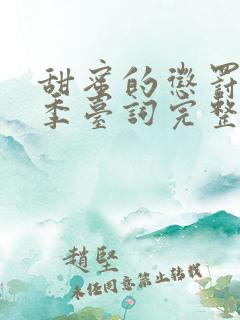 甜蜜的懲罰
季臺詞完整
趙堅
未任同意禁止轉載